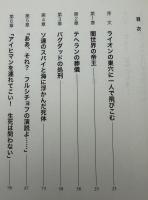 目次
序文 ライオンの巣穴に一人で飛びこむ 23
第1章 闇世界の帝王 25
第2章 テヘランの葬儀 38
第3章 バグダッドの処刑
第4章 ソ連のスパイと海に浮かんだ死体
第5章 「ああ、それ？ フルシチョフの演説よ……」 79
第6章 「アイヒマンを連れてこい！ 生死は問わない」 95